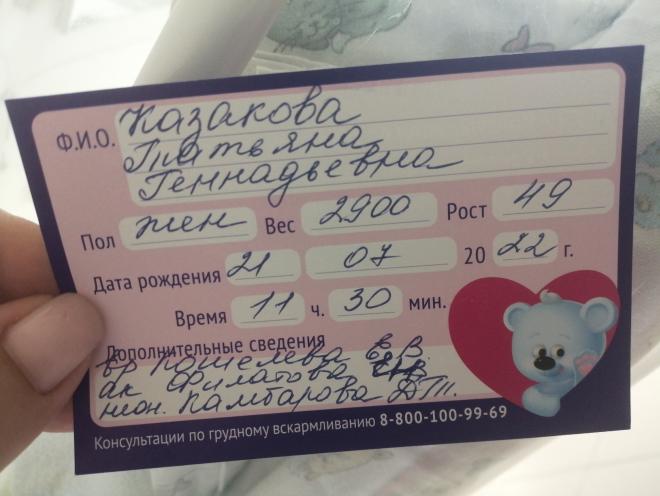 Ф.И.О. Казакова
Татьяна
Геннадьевна
Пол жен Вес 2900 Рост 49
Дата рождения 21 07 20 22 г.
Время 11 ч. 30 мин.
Дополнительные сведения
вр Кошелева Е.В.
ак Филатова
неон. Камбарова Д.Т.
Консультации по грудному вскармливанию 8-800-100-99-69